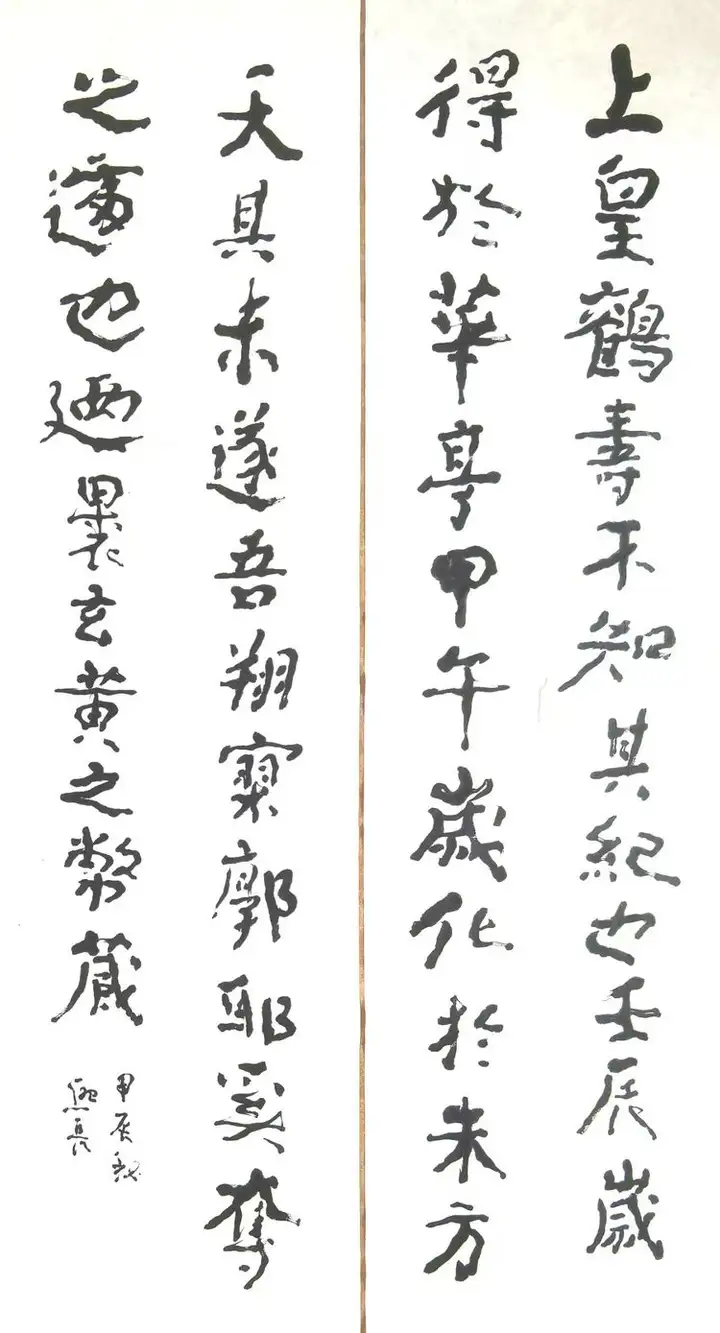 上皇鶴壽不知其紀也壬辰歲
得於華亭甲午歲化於朱方
天其未遂吾翔寥廓耶奚奪
之遽也廼裹玄黃之幣藏
甲辰秋
長